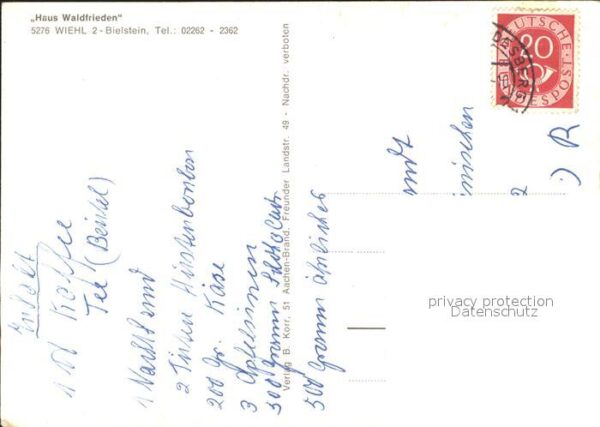 „Haus Waldfrieden“
5276 WIEHL 2 - Bielstein, Tel.: 02262 - 2362
Verlag B. Korr. 51 Aachen-Brand. Freunder Landstr. 49 - Nachdr. verboten
DEUTSCHE
20
BUNDESPOST
Inhalt
1 Kaffee
Tee (Beutel)
1 Nachthemd
2 Tüten Hustenbonbon
200 gr. Käse
3 Apfelsinen
300 gramm
500 gramm ähnliches
2
:) R
privacy protection
Datenschutz